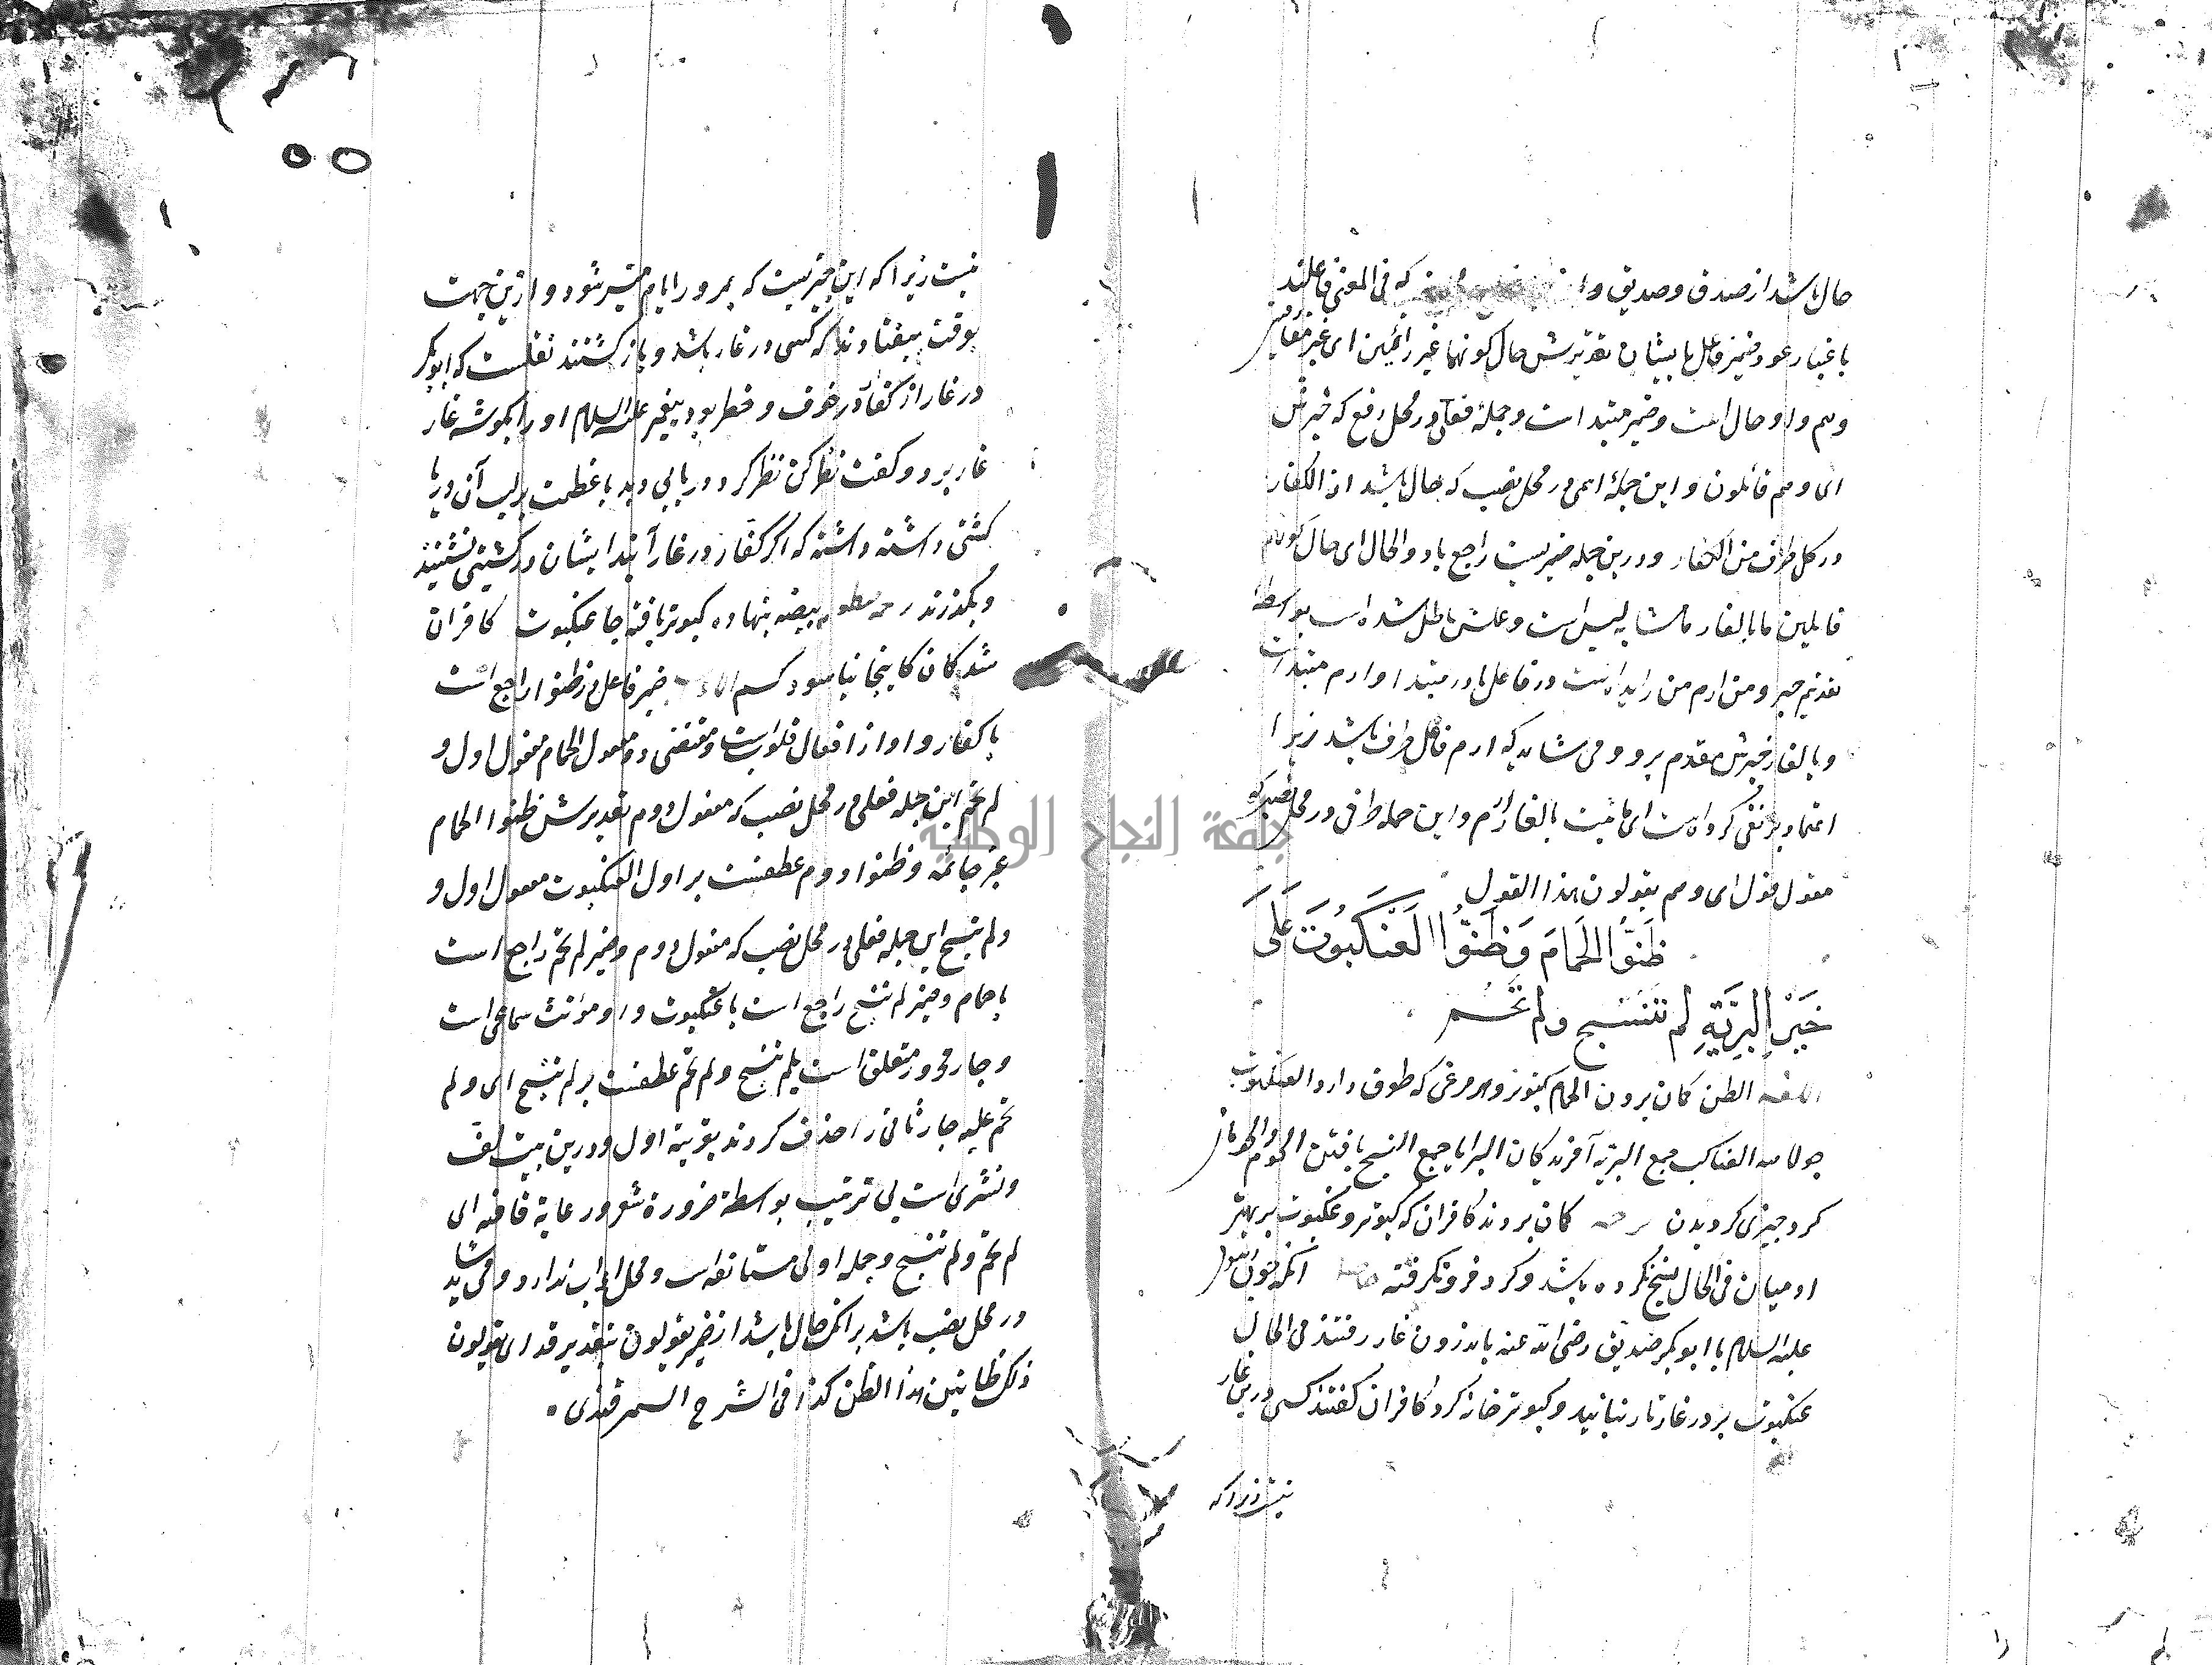 حال باشد از صدق و صدیق و که فی المعنی فاعلند
باعتبار عود ضمیر فاعل بایشان تقدیرش حال کونهما غیر رائمین ای غیر مفارقین
وهم واو حال است وضمیر مبتدا است وجملهٔ فعلی در محل رفع که خبرش
ای وهم قائلون و این جملهٔ اسمی در محل نصب که حال باشد از الکفار
در کل طرف من الکفار ودرین جمله ضمیریست راجع باو والحال ای حال کونهم
قایلین ما بالغار ما مشابه لیس است وعلمش باطل شده است بواسطهٔ
تقدیم خبر ومن ارم من زایده است در فاعل یا در مبتدا وارم مبتدا است
و بالغار خبرش مقدم برو و می شاید که ارم فاعل ظرف باشد زیرا
اعتماد بر نفی کرده است ای ما ثبت بالغار ارم واین جمله ظرفی در محل نصب که
مقول قول ای وهم یقولون هذا القول
ظَنُّوا الحَمَامَ وَظَنُّوا العَنْكَبُوتَ عَلَى
خَيْرِ البَرِيَّةِ لم تَنْسُج ولم تَحُم
اللغه الظن کمان بردن الحمام کبوتر و هر مرغی که طوق دارد العنکبوت
جولاهه العناکب جمع البریه آفریدگان البرایا جمع النسج بافتن الحوم والحومان
کرد چیزی کردیدن ترجمه کمان بردند کافران که کبوتر وعنکبوت بر بهتر
ادمیان فی الحال نسج نکرده باشد وکرد فرو نکرفته حاصل انکه چون رسول
علیه السلام با ابوبکر صدیق رضی الله عنه باندرون غار رفتند فی الحال
عنکبوت بر در غار تار تنانید وکبوتر خانه کرد کافران کفتند کسی درین غار
نیست زیرا که
نیست زیرا که این چیزیست که بمرور ایام میسر شود وازین جهت
بوقت بیفتادند که کسی در غار باشد وبازکشتند نقلست که ابوبکر
در غار از کفار در خوف وخطر بود پیغمبر علیه السلام او را بکوشه غار
غار برد وکفت نظر کن نظر کرد دریایی دید با عظمت بر لب آن دریا
کشتی داشته داشته که اکر کفار در غار آیند ایشان در کشتی نشینند
وبکذرند بیضه بنهاده کبوتر بافته جا عنکبوت کافران
شد کمان کاینجا نیاسود کسی ضمیر فاعل در ظنوا راجع است
با کفار واو از افعال قلوب است ومقتضی دو مفعول الحمام مفعول اول و
لم تحم این جمله فعلی در محل نصب که مفعول دوم تقدیرش ظنوا الحمام
غیر حائمة وظنوا دوم عطفست بر اول العنکبوت مفعول اول و
ولم تنسج این جمله فعلی در محل نصب که مفعول دوم وضمیر لم تحم راجع است
با حمام وضمیر لم تنسج راجع است با عنکبوت و او مؤنث سماعی است
وجار مجرور متعلق است بلم تنسج ولم تحم عطفست بر لم تنسج ای ولم
تحم علیه جار ثانی را حذف کردند بقرینهٔ اول ودرین بیت لف
ونشری است بی ترتیب بواسطهٔ ضرورة شعر ورعایة قافیه ای
لم تحم ولم تنسج وجمله اولی مستانفه است ومحل اعراب ندارد ومی شاید
در محل نصب باشد برانکه حال باشد از ضمیر یقولون بتقدیر قد ای یقولون
ذلک ظانین هذا الظن کذا فی الشرح السمرقندی
جامعة النجاح الوطنية